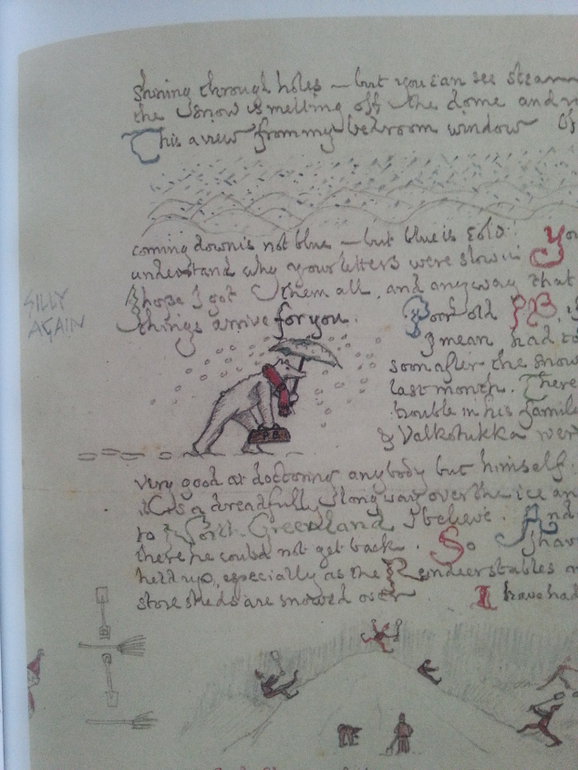 shining through holes — but you can see steam
the snow is melting off the dome and
This a view from my bedroom window
coming down is not blue — but blue is cold
You
understand why your letters were slow in
I hope I got them all, and anyway that
SILLY
AGAIN
things arrive for you. Poor old PB, i
I mean had to
soon after the snow
last month. There
trouble in his family
& Valkotukka were
P.B.
very good at doctoring anybody but himself.
it is a dreadfully long way over the ice an
to North Greenland I believe. And
there he could not get back. So I have
held up, especially as the Reindeer stables
store sheds are snowed over
I have had